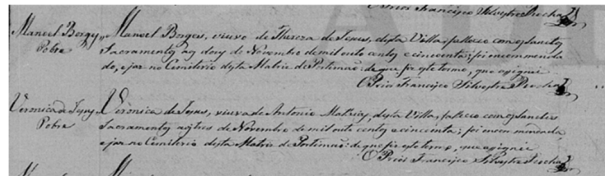 O Prior Francisco Silvestre Rocha
Manoel Borges, Manoel Borges, viuvo de Thereza de Jesus, desta Villa falleceo com os
Pobre Sacramentos aos de Novembro de mil oito centos e cincoenta: foi encommenda
do, e jaz no Cemiterio desta Matriz de Portimão: de que fiz este termo, que assignei
O Prior Francisco Silvestre Rocha
Veronica de Jesus, Veronica de Jesus, viuva de Antonio desta Villa falleceo com os
Pobre Sacramentos aos tres de Novembro de mil oito centos e cincoenta; foi encommendada
e jaz no Cemiterio desta Matriz de Portimão: de que fiz este termo, que assignei
O Prior Francisco Silvestre Rocha